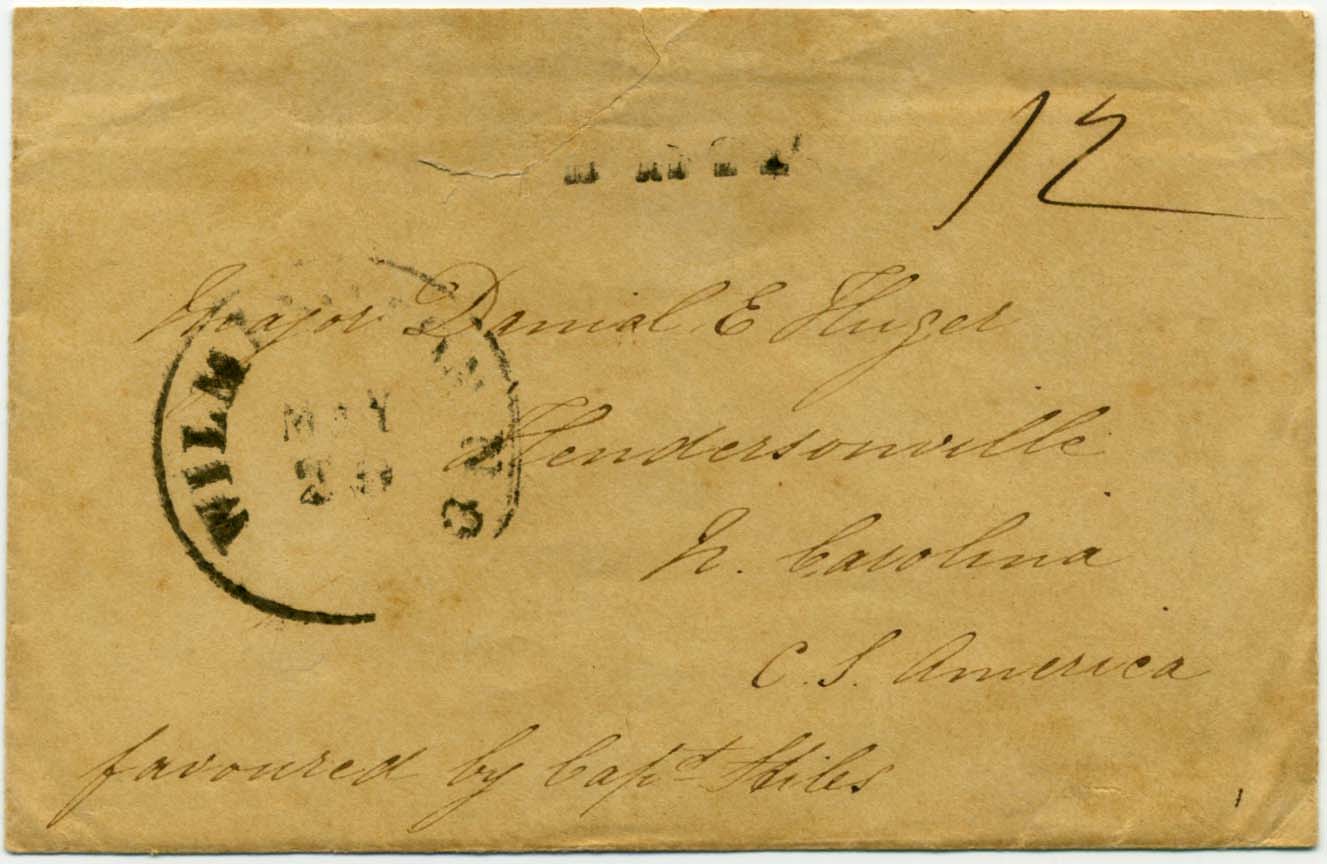 12
Major Danial E Huger
Hendersonville
N. Carolina
C. S. America
favoured by Capt Stiles
WILM N.C
MAY
29